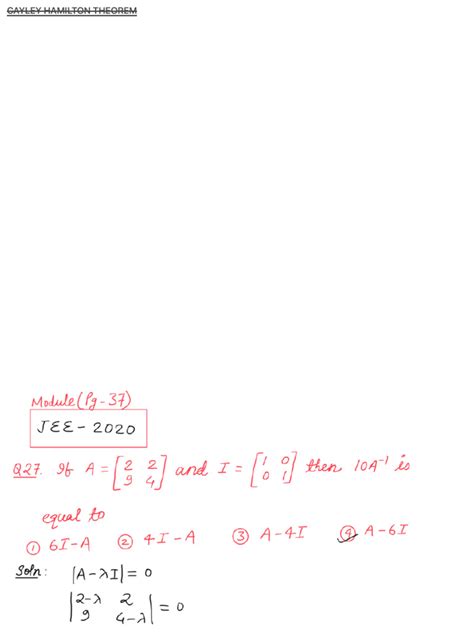 CAYLEY HAMILTON THEOREM
Module (Pg-37)
JEE-2020
Q27. If A = [2 2 9 4] and I = [1 0 0 1] then 10A⁻¹ is
equal to
① 6I-A ② 4I-A ③ A-4I ④ A-6I
Soln: |A-λI| = 0
|2-λ 2 9 4-λ| = 0